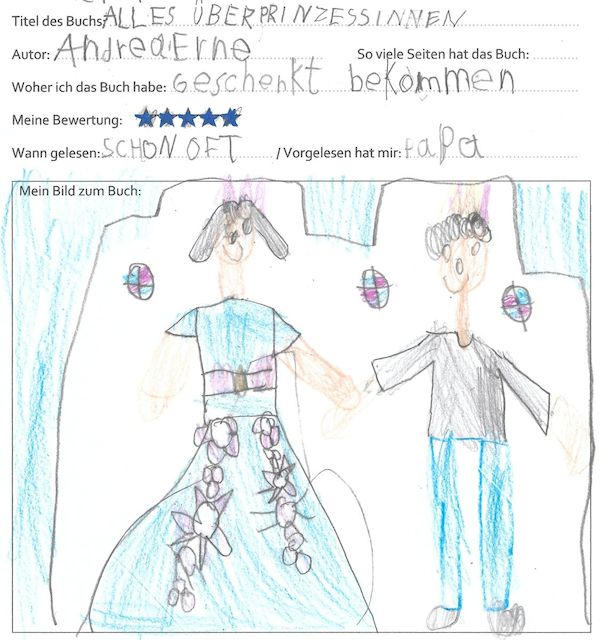 Titel des Buchs: ALLES ÜBERPRINZESSINNEN
Autor: Andrea Erne So viele Seiten hat das Buch:
Woher ich das Buch habe: Geschenkt bekommen
Meine Bewertung:
Wann gelesen: SCHON OFT / Vorgelesen hat mir: PaPa
Mein Bild zum Buch: